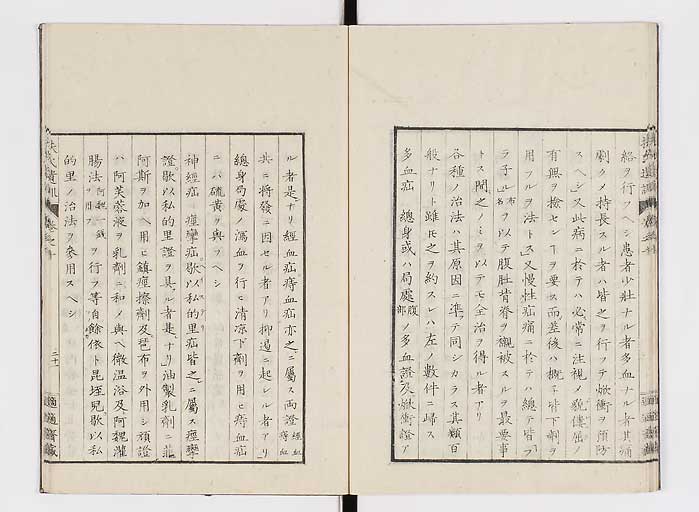 絡ヲ行フヘシ患者少壮ナル者多血ナル者其痛
劇ク持長スル者ハ皆之ヲ行フテ焮衝ヲ預防
スヘシ又此病ニ於テハ必常ニ注視メ貌僂屈ノ
有無ヲ撿センヿヲ要ス而差後ハ概子皆下剤ヲ
用フルヲ法トス又慢性疝痛ニ於テハ總テ皆フ
ラ子ル布名ヲ以テ腹肚背脊ヲ襯被スルヲ最要事
トス間之ノミヲ以テモ全治ヲ得ル者アリ
各種ノ治法ハ其原因ニ準テ同シカラス其類百
般ナリト雖𪜈之ヲ約スレハ左ノ數件ニ歸ス
多血疝 總身或ハ局處腹部ノ多血證及焮衝證ア
ル者是ナリ經血疝痔血疝亦之ニ屬ス両證經血痔血
共ニ將發ニ因セル者アリ抑遏ニ起レル者アリ
總身局處ノ瀉血ヲ行ヒ清凉下劑ヲ用ヒ痔血疝
ニハ硫黄ヲ與フヘシ
神經疝 痙攣疝歇以私的里疝皆之ニ屬ス痙攣
證歇以私的里證ヲ具ル者是ナリ油製乳劑ニ菲
阿斯ヲ加ヘ用ヒ鎮痙擦劑及琶布ヲ外用シ頑證
ハ阿芙蓉液ヲ乳劑ニ和メ與ヘ微温浴及阿魏灌
腸法阿魏一錢ヲ用フヲ行フ等自餘依卜昆垤兒歇以私
的里ノ治法ヲ參用スヘシ
扶氏遺訓 卷之十 二十 適適齋藏